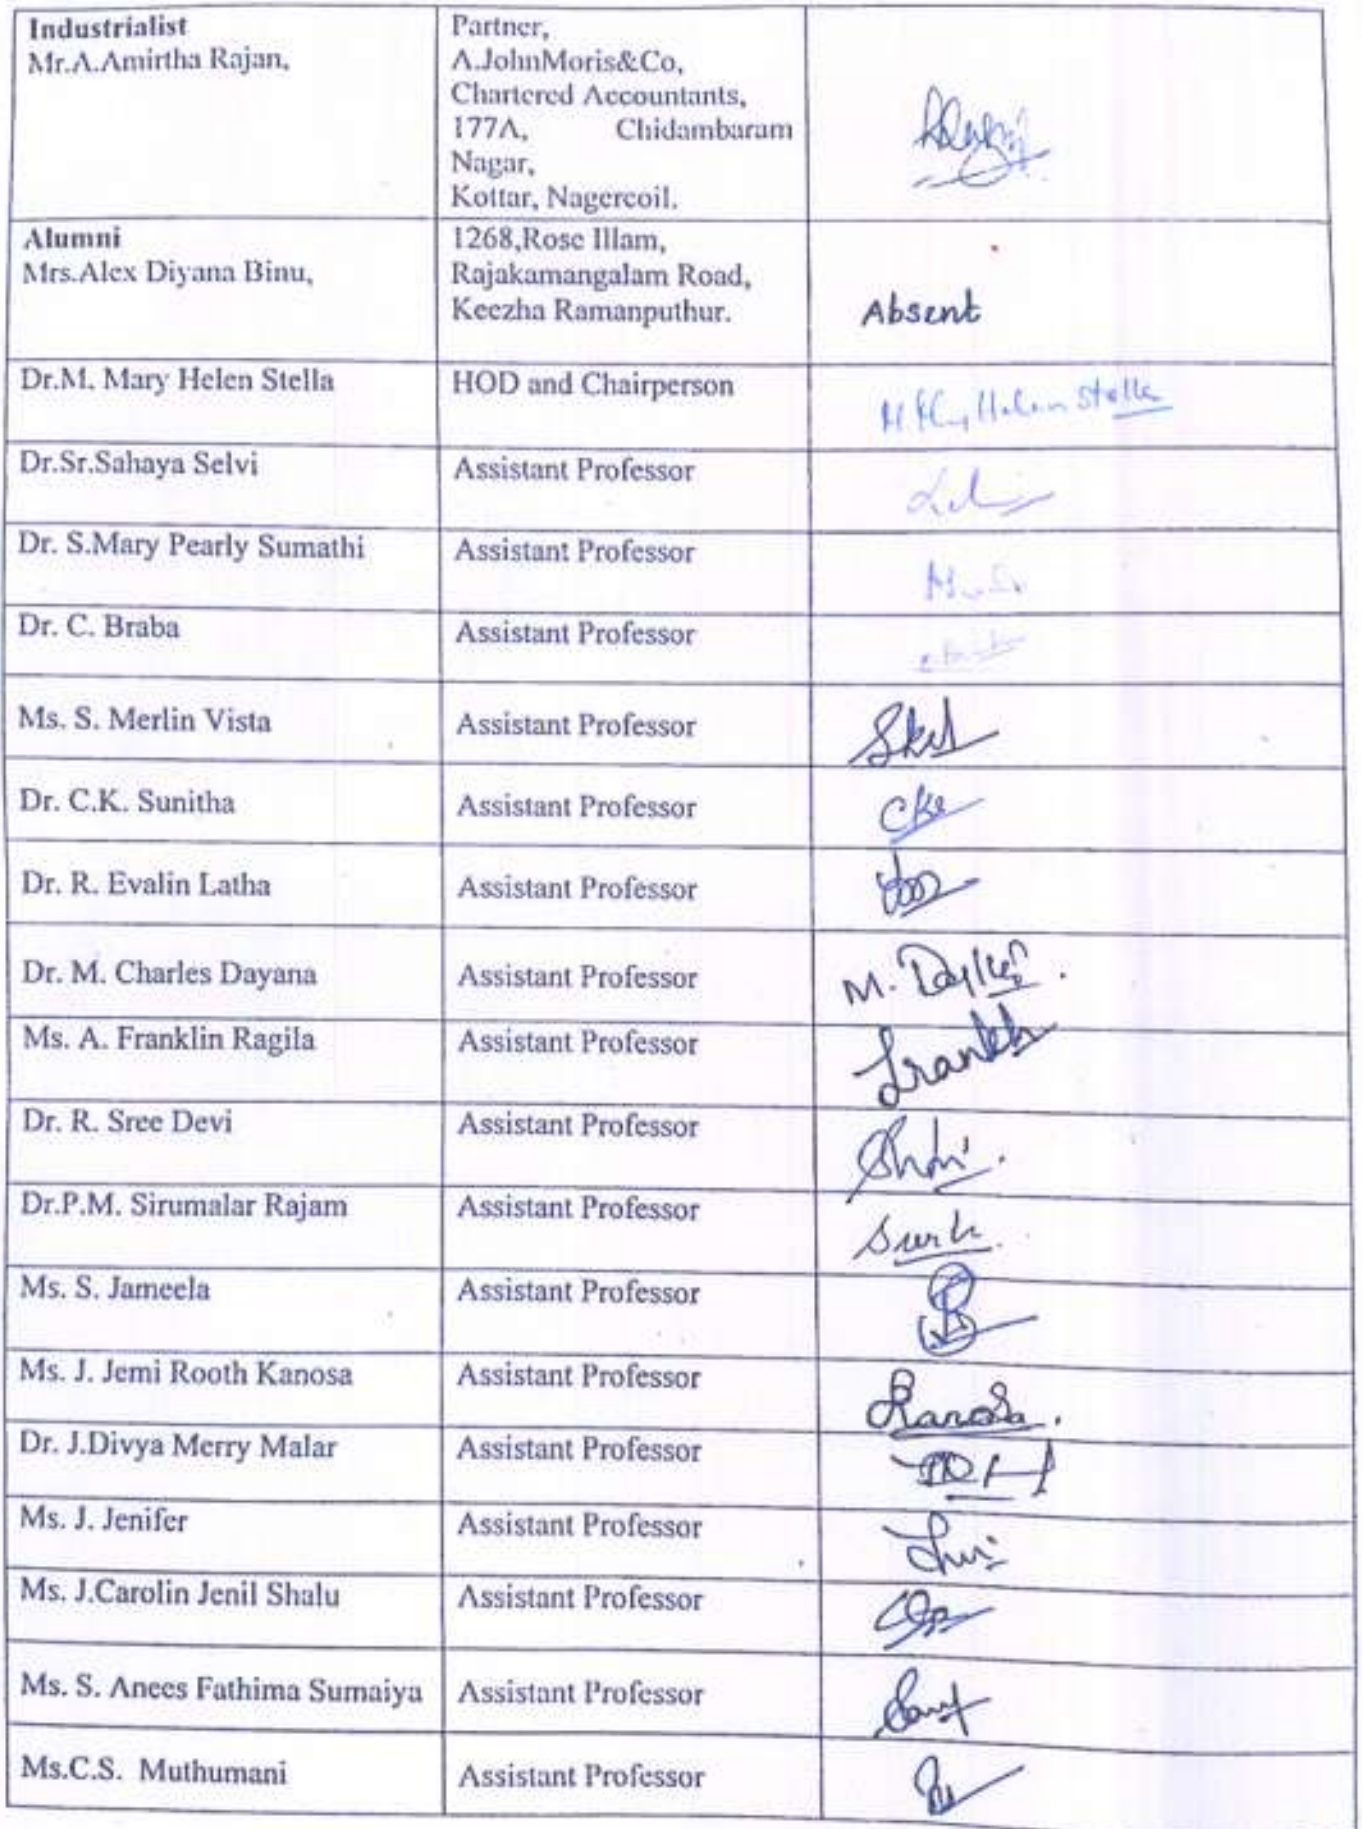 Industrialist
Mr.A.Amirtha Rajan,
Partner,
A.JohnMoris&Co,
Chartered Accountants,
177A, Chidambaram
Nagar,
Kottar, Nagercoil.
Alumni
Mrs.Alex Diyana Binu,
1268,Rose Illam,
Rajakamangalam Road,
Keezha Ramanputhur.
Absent
Dr.M. Mary Helen Stella
HOD and Chairperson
Helen Stella
Dr.Sr.Sahaya Selvi
Assistant Professor
Dr. S.Mary Pearly Sumathi
Assistant Professor
Dr. C. Braba
Assistant Professor
Ms. S. Merlin Vista
Assistant Professor
Dr. C.K. Sunitha
Assistant Professor
Dr. R. Evalin Latha
Assistant Professor
Dr. M. Charles Dayana
Assistant Professor
Ms. A. Franklin Ragila
Assistant Professor
Dr. R. Sree Devi
Assistant Professor
Dr.P.M. Sirumalar Rajam
Assistant Professor
Ms. S. Jameela
Assistant Professor
Ms. J. Jemi Rooth Kanosa
Assistant Professor
Dr. J.Divya Merry Malar
Assistant Professor
Ms. J. Jenifer
Assistant Professor
Ms. J.Carolin Jenil Shalu
Assistant Professor
Ms. S. Anees Fathima Sumaiya
Assistant Professor
Ms.C.S. Muthumani
Assistant Professor